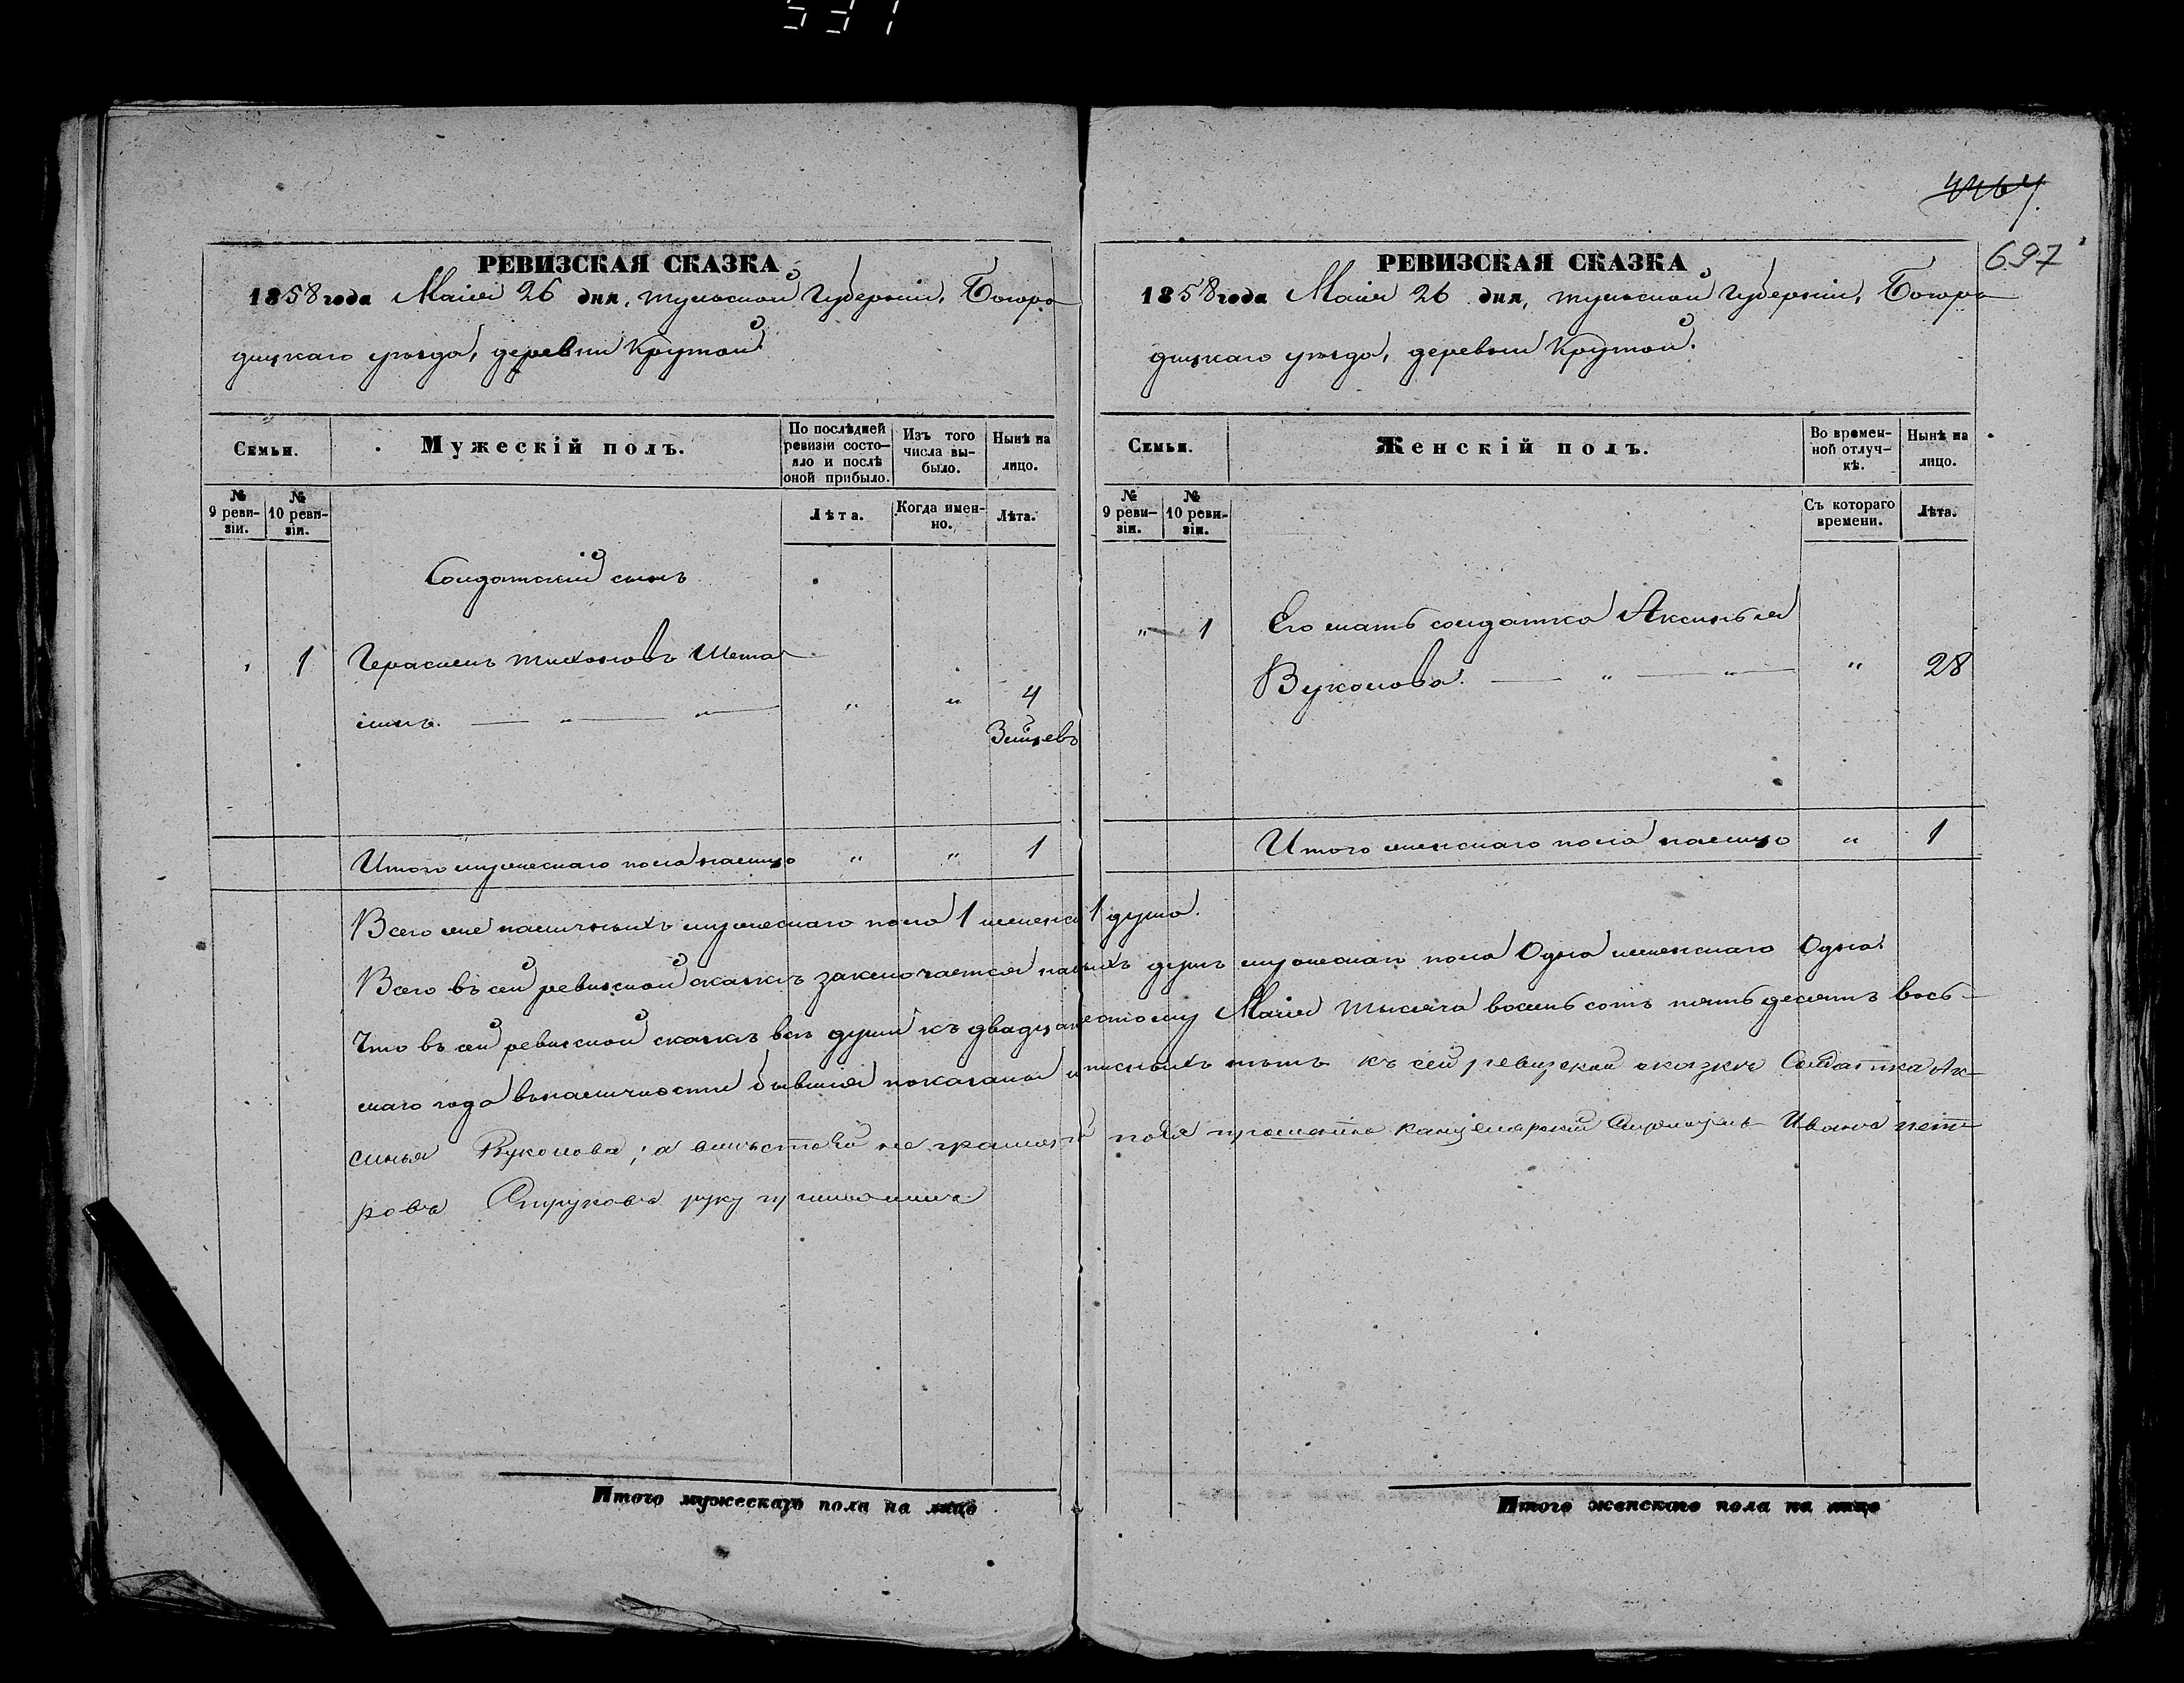 531
4464
697
РЕВИЗСКАЯ СКАЗКА
1858 года Маія 26 дня, Тульской Губерніи, Богоро
дицкаго уѣзда, деревни Крутой.
Семьи.
Мужескій полъ.
По послѣдней ревизіи состо-яло и послѣ оной прибыло.
Изъ того числа вы-было.
Нынѣ на лицо.
№ 9 реви-зіи.
№ 10 реви-зіи.
Лѣта.
Когда имен-но.
Лѣта.
Солдатскій сынъ
" 1 Герасимъ Тихоновъ
" " 4
Итого мужескаго пола налицо " " 1
РЕВИЗСКАЯ СКАЗКА
1858 года Маія 26 дня, Тульской Губерніи, Богоро
дицкаго уѣзда, деревни Крутой.
Семьи.
Женскій полъ.
Во времен-ной отлуч-кѣ.
Нынѣ на лицо.
№ 9 реви-зіи.
№ 10 реви-зіи.
Съ котораго времени.
Лѣта.
" 1 Его мать солдатка Аксинья
Вуколова. — " — " " 28
Итого женскаго пола налицо " 1
Всего же наличныхъ мужескаго пола 1 женска 1 душа.
Всего въ сей ревизской сказкѣ заключается душъ мужескаго пола Одна женскаго Одна.
Что въ сей ревизской сказкѣ всѣ души къ Маія тысяча восемь сотъ пятьдесятъ вось-
маго года въ наличности бывшія показаны и писныхъ нѣтъ къ сей ревизской сказкѣ Солдатка Ак-
синья Вуколова, а вмѣсто Ей не грамотной по Ея прошенію канцелярскій Служитель Иванъ пет-
ровъ Струковъ руку приложилъ
Итого мужескаго пола на лицо
Итого женскаго пола на лицо